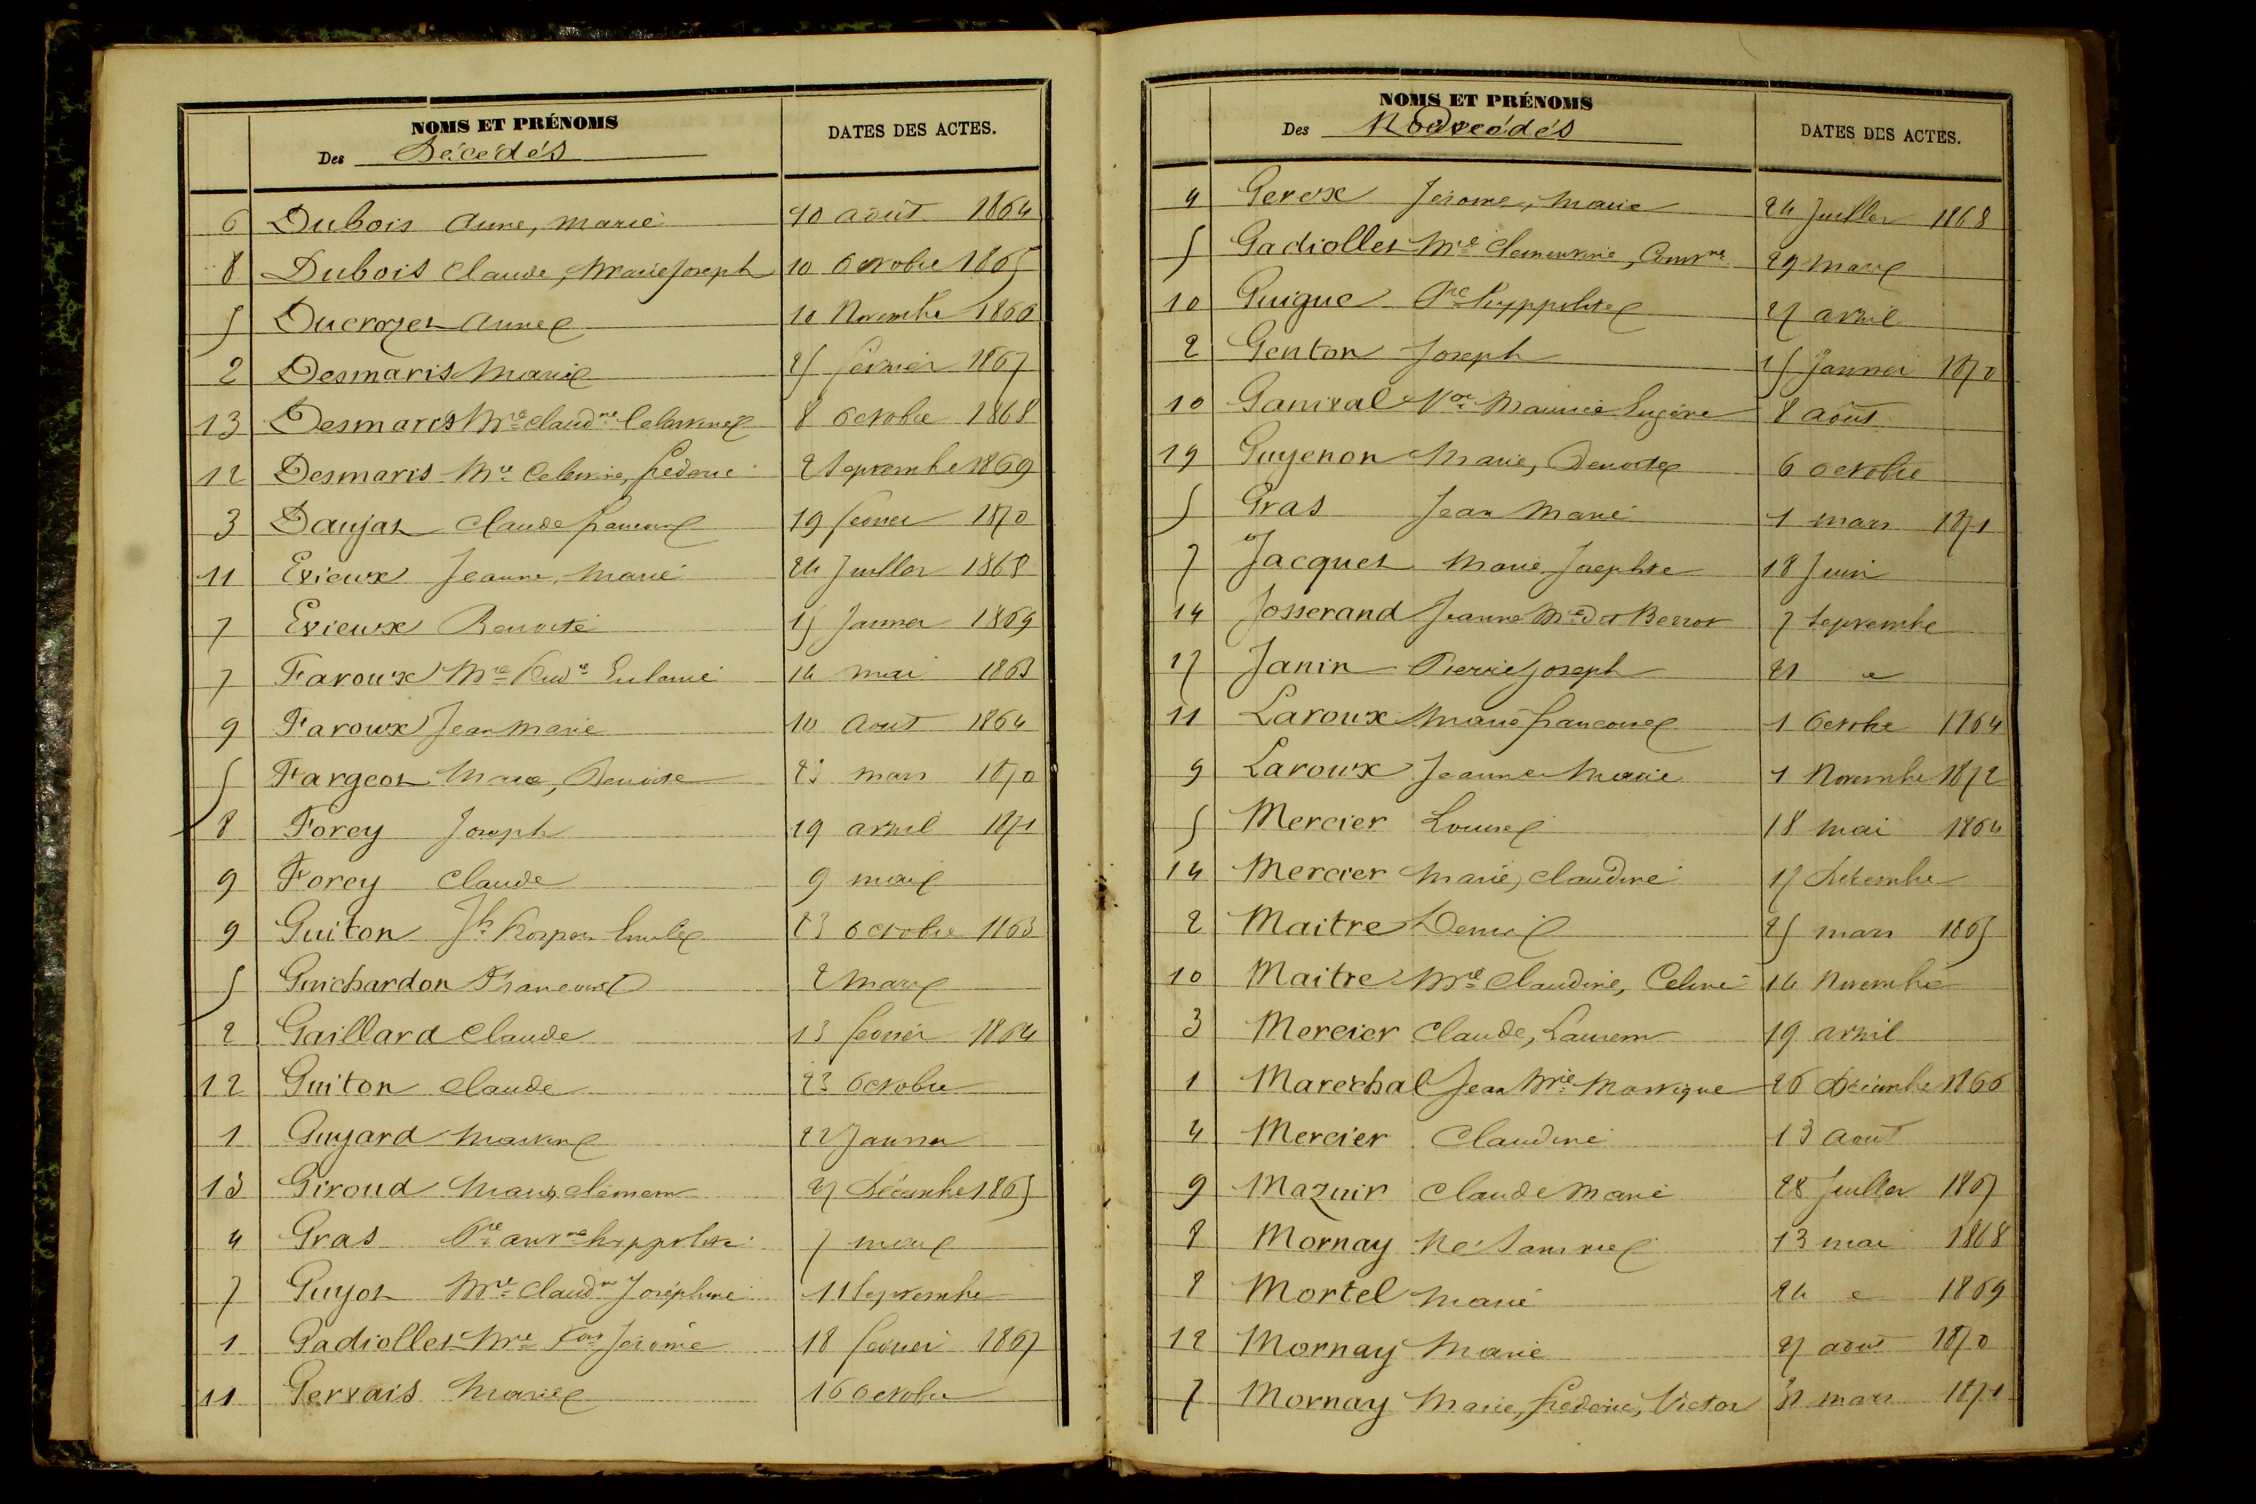 NOMS ET PRÉNOMS
Des Décédés
DATES DES ACTES.
6 Dubois Anne, Marie 10 août 1864
8 Dubois Claude, Marie Joseph 10 Octobre 1865
5 Ducrozet Anne 10 Novembre 1866
2 Desmaris Marie 25 février 1867
13 Desmaris Mie Claudne Celestine 8 Octobre 1868
12 Desmaris Mie Celestine, fréderic 2 Septembre 1869
3 Daujat Claude francois 19 février 1870
11 Evieux Jeanne, Marie 24 Juillet 1868
7 Evieux Benoite 15 Janvier 1869
7 Faroux Mie Eulanie 14 mai 1863
9 Faroux Jean Marie 10 Aout 1864
5 Fargeot Marie, Benoite 23 mars 1870
8 Forey Joseph 19 avril 1871
9 Forey Claude 9 mai
9 Guiton Jh 23 octobre 1863
5 Guichardon Francois 2 Mars
2 Gaillard Claude 13 février 1864
12 Guiton Claude 23 Octobre
1 Guyard 22 Janvier
13 Giroud Marie, Clément 27 Décembre 1865
4 Gras Pre antne hippolite 7
7 Guyot Mie Claudne Joséphine 11 Septembre
1 Gadiollet Mie Fois Jérome 18 février 1867
11 Gervais Marie 16 Octobre
NOMS ET PRÉNOMS
Des Décédés
DATES DES ACTES.
4 Gerex Jérome, Marie 24 Juillet 1868
5 Gadiollet Mie Clementine 29
10 Guigue Pre hyppolite 27 avril
2 Genton Joseph 15 Janvier 1870
10 Ganival Maurice Eugène 8 août
19 Guyenon Marie, Benoite 6 octobre
5 Gras Jean Marie 1 mars 1871
7 Jacquet Marie Josephte 18 Juin
14 Josserand Jeanne Mie 7 Septembre
17 Janin Pierre Joseph 21
11 Laroux Marie francoise 1 Octobre 1864
9 Laroux Jeanne Marie 1 Novembre 1872
5 Mercier Louise 18 mai 1864
14 Mercier Marie, Claudine 17 Décembre
2 Maitre Denis 25 mars 1865
10 Maitre Mie Claudine, Celine 14 Novembre
3 Mercier Claude, Laurent 19 avril
1 Maréchal Jean Mrie 26 Décembre 1866
4 Mercier Claudine 13 Aout
9 Mazuir Claude Marie 28 Juillet 1867
2 Mornay Né Sans vie 13 mai 1868
2 Mortel Marie 24 1869
12 Mornay Marie 27 aout 1870
7 Mornay Marie, fréderic, Victor 31 mars 1871